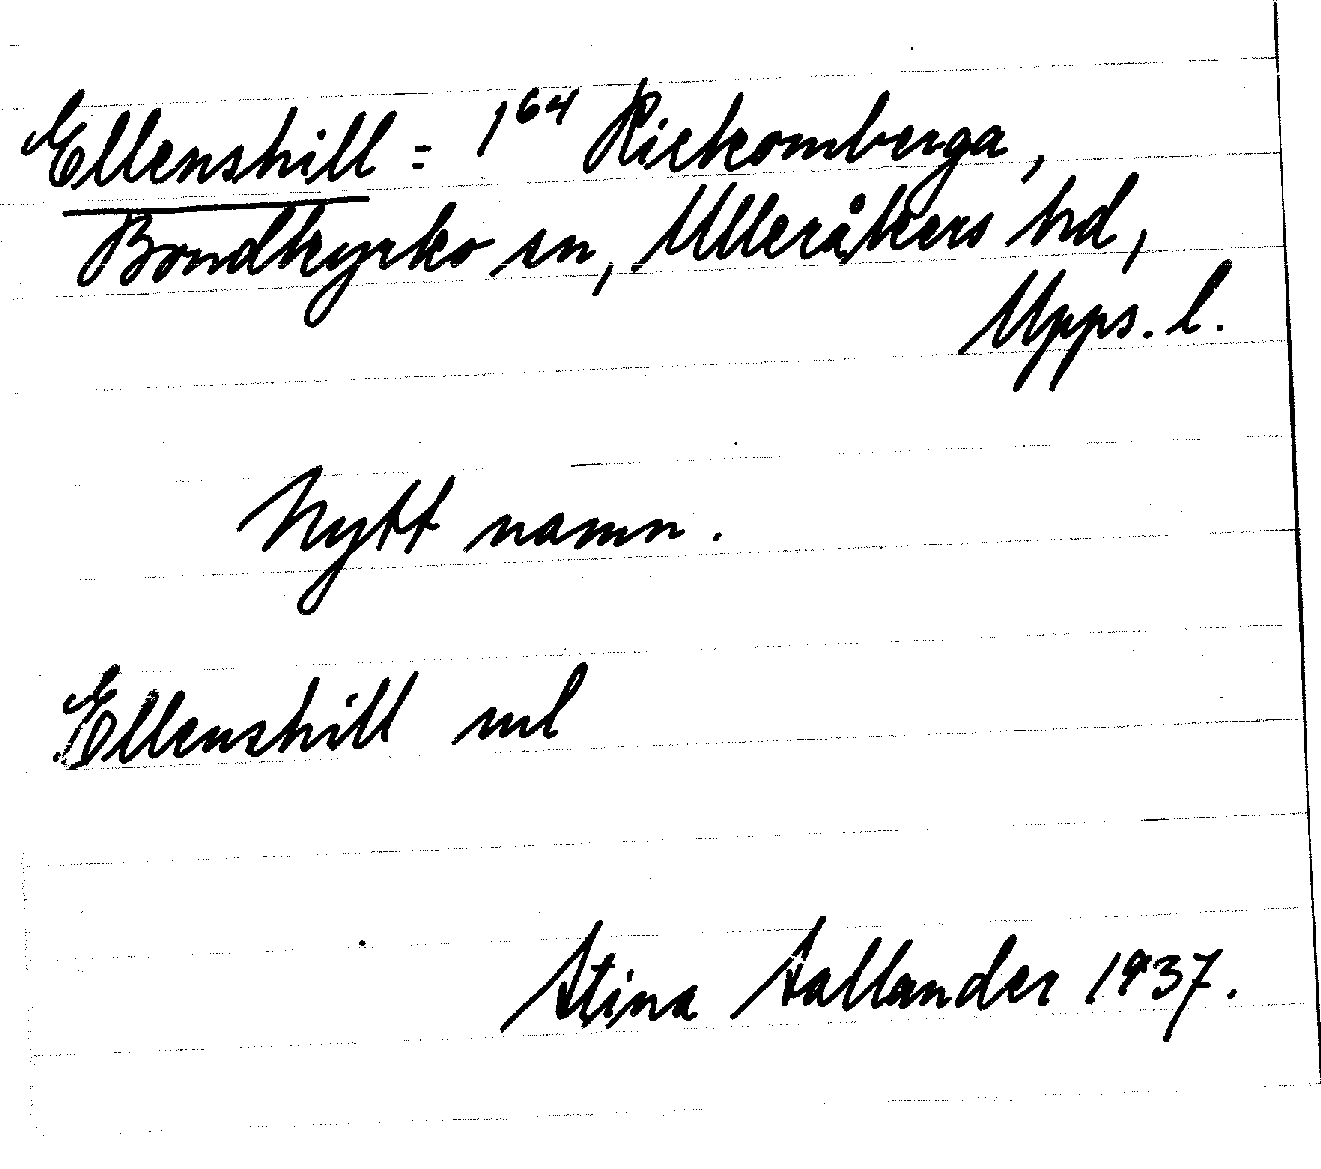 Ellenshill = 1⁶⁴ Rickomberga,
Bondkyrko sn, Ulleråkers hd,
Upps. l.
Nytt namn.
Ellenshill sml
Stina Sallander 1937.